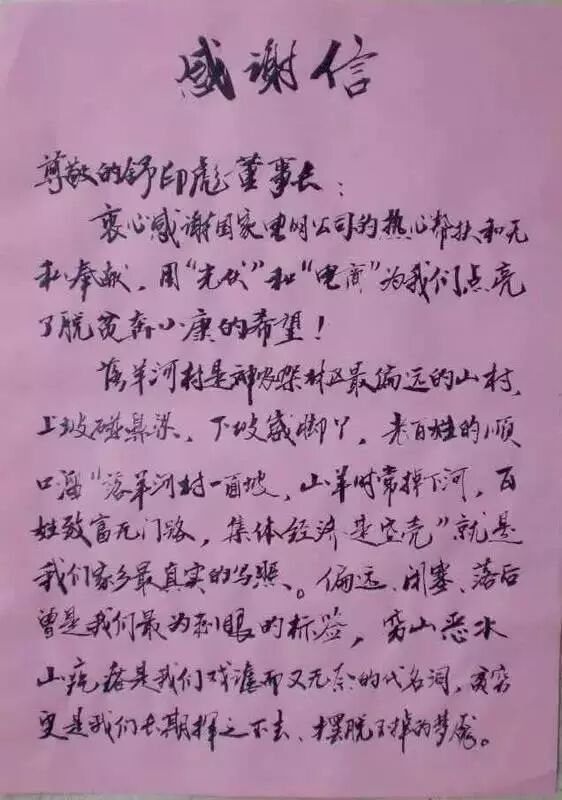 感谢信
尊敬的舒印彪董事长：
衷心感谢国家电网公司的热心帮扶和无
私奉献，用“光伏”和“电商”为我们点亮
了脱贫奔小康的希望！
落羊河村是神农架林区最偏远的山村，
上坡碰鼻梁，下坡 脚丫，老百姓的顺
口溜“落羊河村一面坡，山羊时常掉下河，百
姓致富无门路，集体经济是空壳”就是
我们家乡最真实的写照。偏远、闭塞、落后
曾是我们最为刺眼的标签，穷山恶水
山 是我们戏谑而又无奈的代名词，贫穷
更是我们长期挥之不去、摆脱不掉的梦魇。